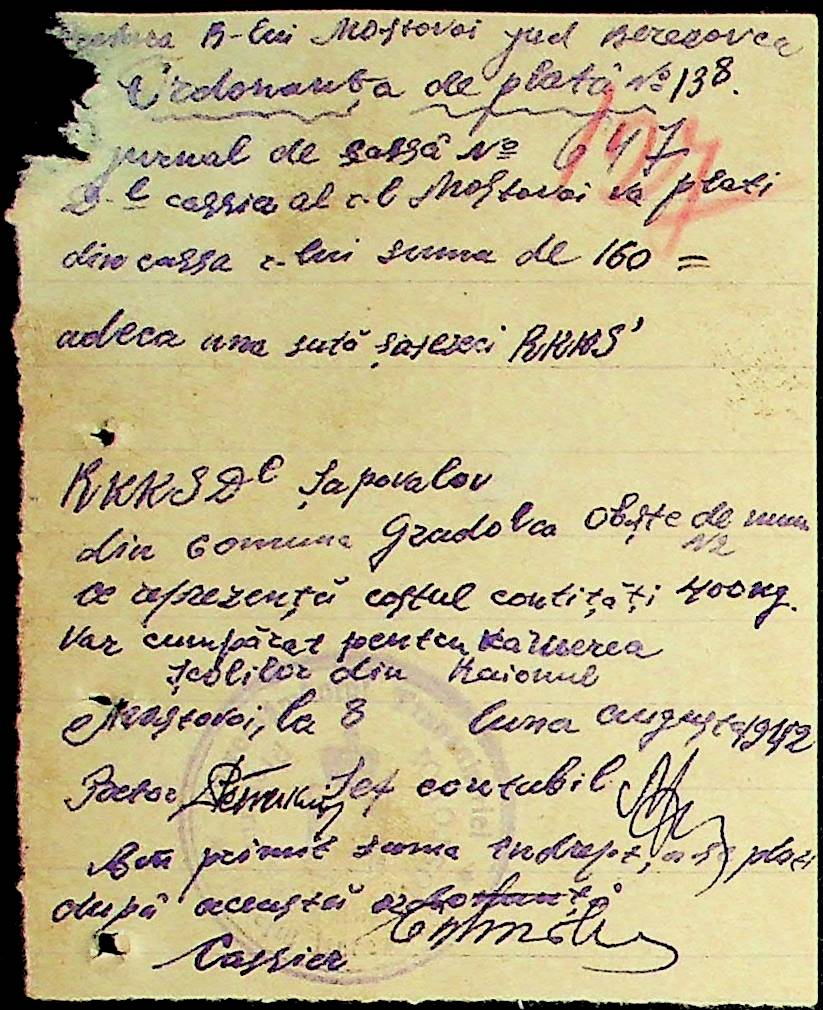 R-lui Moștovoi jud Berezovca
Ordonanța de plată № 138.
jurnal de cassă № 647
127
D-l cassier al r-l Moștovoi va plati
din cassa r-lui suma de 160 =
adeca una sută șasezeci RKKS
RKKS Dl Șapovalov
din comuna Gradovca Obște de
№2
ce reprezentă coștul contități 400 kg.
Var cumpărat pentru
școlilor din Raionul
Moștovoi, la 8 luna august 1942
Pretor Șef contubil
Am primit suma indrept, a se plati
după aceastâ ordonanță
Cassier